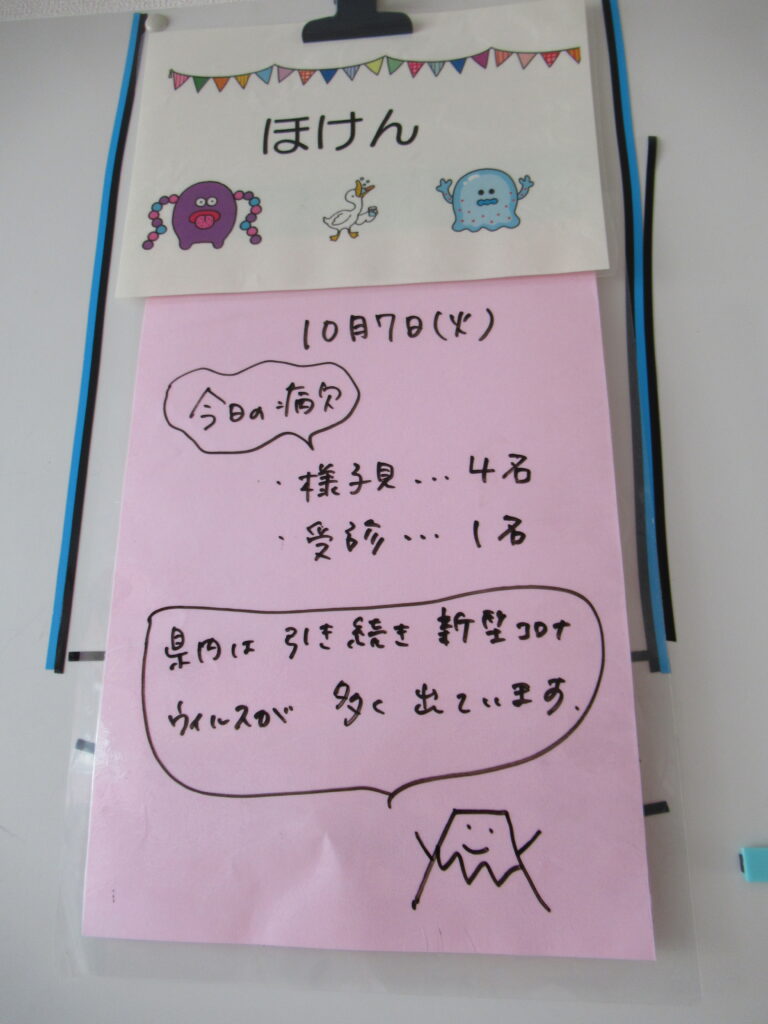 ほけん
10月7日(火)
今日の病欠
・様子見…4名
・受診…1名
県内は引き続き新型コロナ
ウイルスが多く出ています.